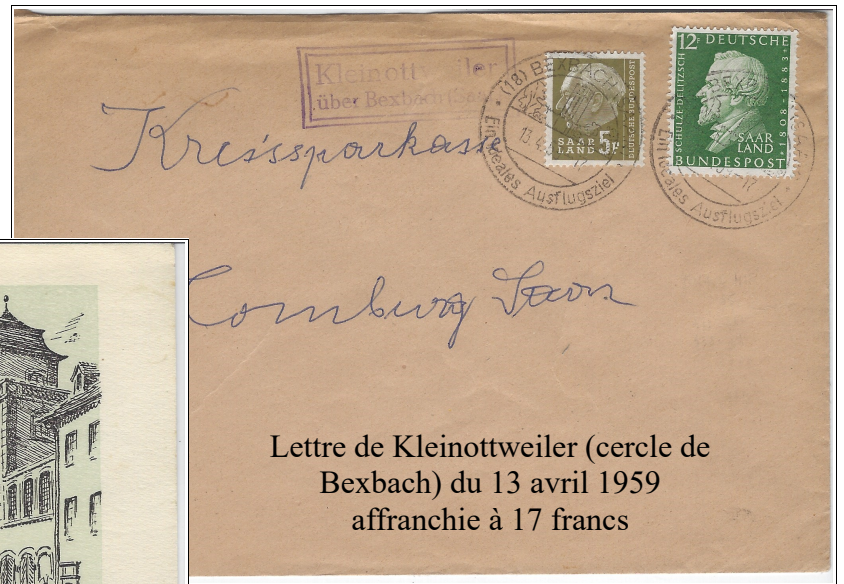 Kleinottweiler
über Bexbach (Saar)
(18) BEXBACH
13.4.
Ein ideales Ausflugsziel
5F
SAAR
LAND
DEUTSCHE BUNDESPOST
12F DEUTSCHE
SCHULZE-DELITZSCH
• 1808-1883 •
SAAR
LAND
BUNDESPOST
Ein ideales Ausflugsziel
Kreissparkasse
Homburg Saar
Lettre de Kleinottweiler (cercle de
Bexbach) du 13 avril 1959
affranchie à 17 francs